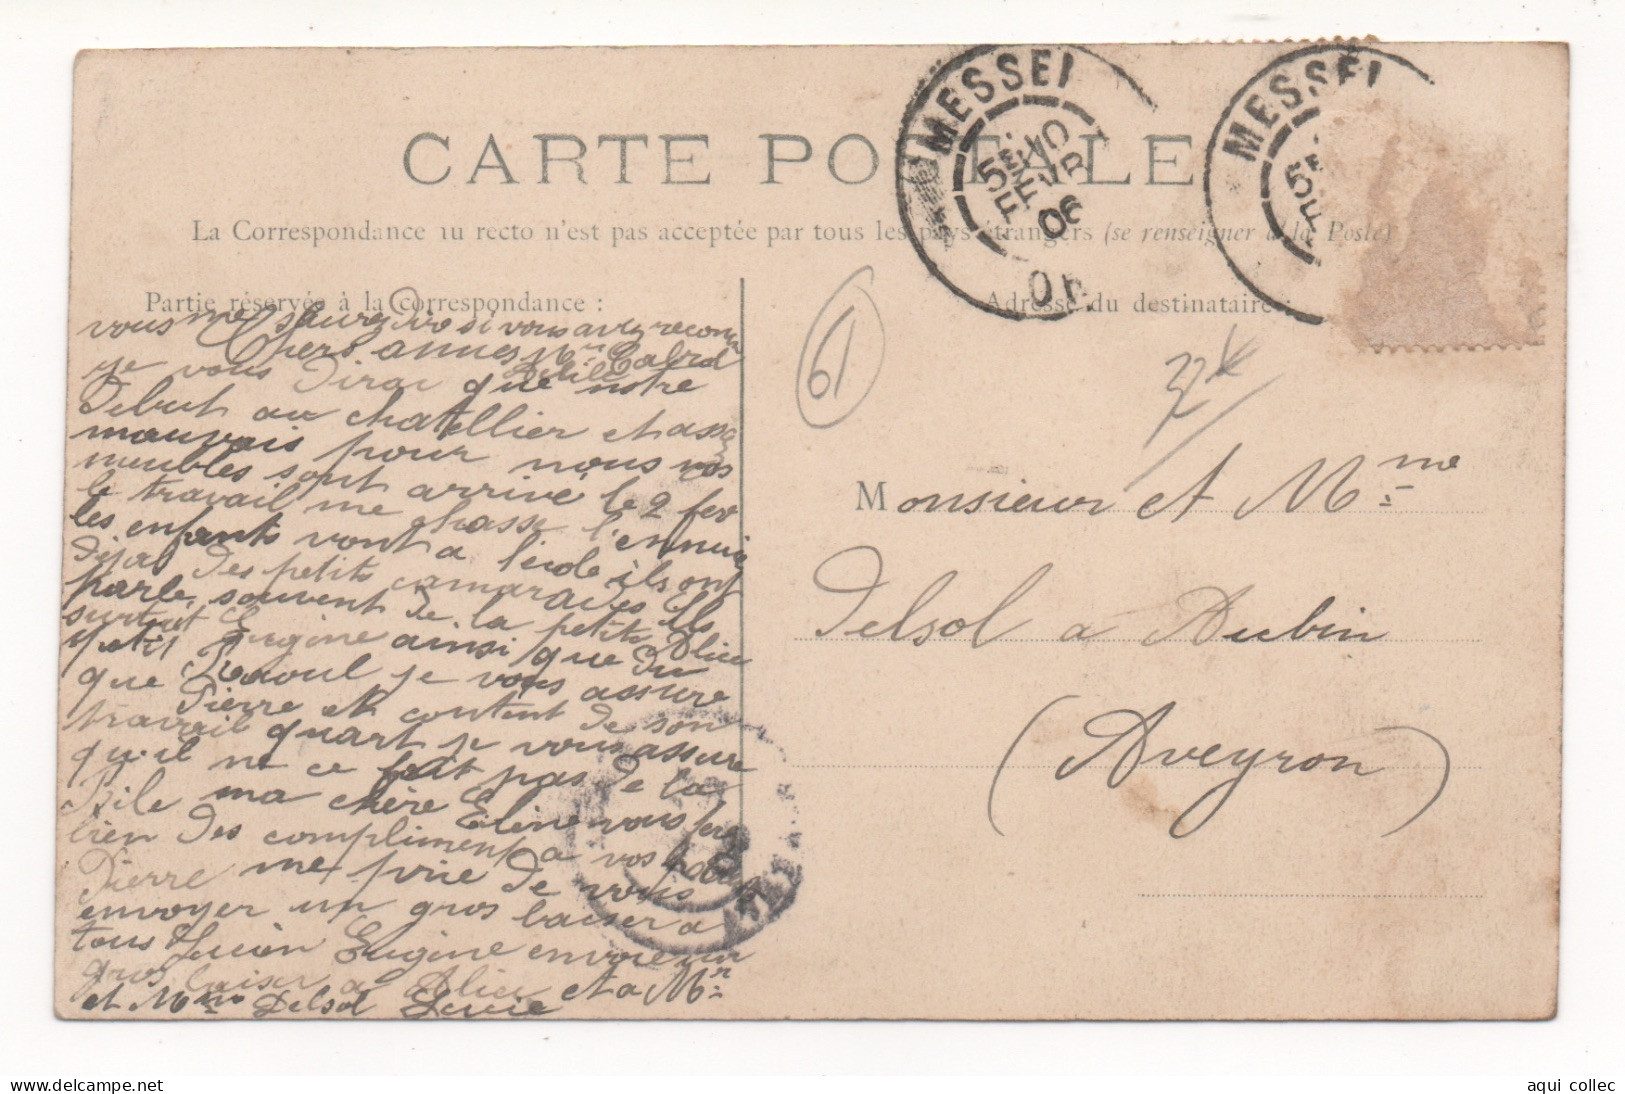 CARTE POSTALE
La Correspondance au recto n'est pas acceptée par tous les pays étrangers (se renseigner à la Poste)
Partie réservée à la correspondance :
Adresse du destinataire :
MESSEI
5E 10
FEVR
06
MESSEI
5E
61
vous me saurez dire si vous avez reconnu
Chers amies
je vous dirai que notre
Debut au chatellier et assez
mauvais pour nous vos
meubles sont arrivé le 2 fev
le travail me chasse l'ennuie
les enfants vont a l'ecole ils ont
déja des petits camarades ils
parle souvent de la petite Alice
surtout Eugène ainsi que du
petit Raoul je vous assure
que Pierre et content de son
travail quart je vous assure
qu'il ne ce fait pas de la
Bile ma chère Elène vous fere
bien des compliment a vos
Pierre me prie de vous
envoyer un gros baiser a
tous Lucien Eugène envoie un
gros baiser a Alice et a Mr
et Mme Delsol Lucie
Monsieur et Mme
Delsol a Aubin
(Aveyron)
aqui collec